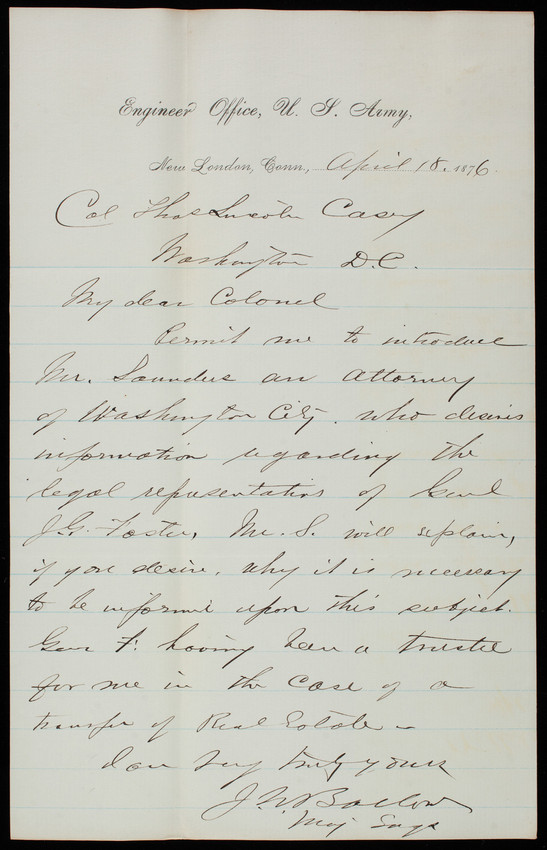 Engineer Office, U. S. Army,
New London, Conn, April 18. 1876.
Col Thos Lincoln Casey
Washington D.C.
My dear Colonel
Permit me to introduce
Mr. Saunders an Attorney
of Washington City. who desires
information regarding the
legal representatives of Genl
J.G. Foster, Mr. S. will explain,
if you desire, why it is necessary
to be informed upon this subject.
Gen F. having been a trustee
for me in the case of a
transfer of Real Estate
I am very truly yours
J.W. Barlow
Maj Engs